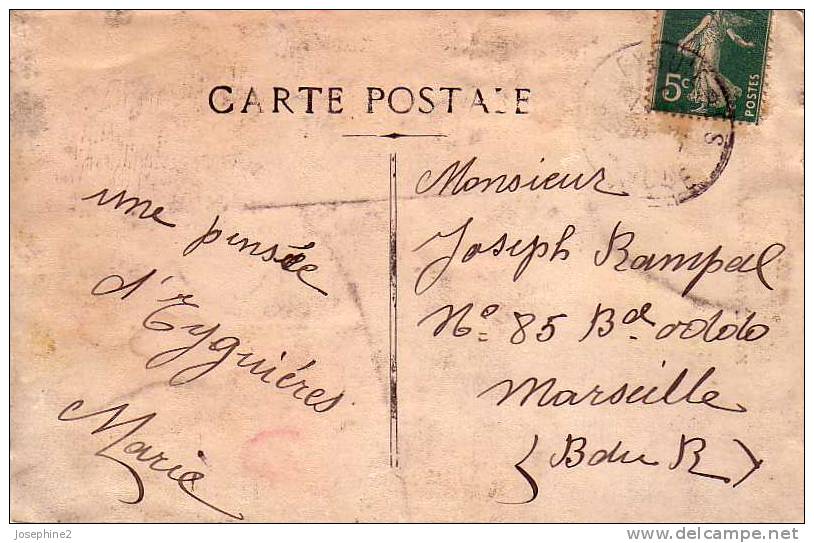 CARTE POSTALE
une pensée
d'Eyguiéres
Marie
Monsieur
Joseph Rampal
N° 85 Bd. oddo
Marseille
(B du R)
5c
POSTES
josephine2
www.delcampe.net